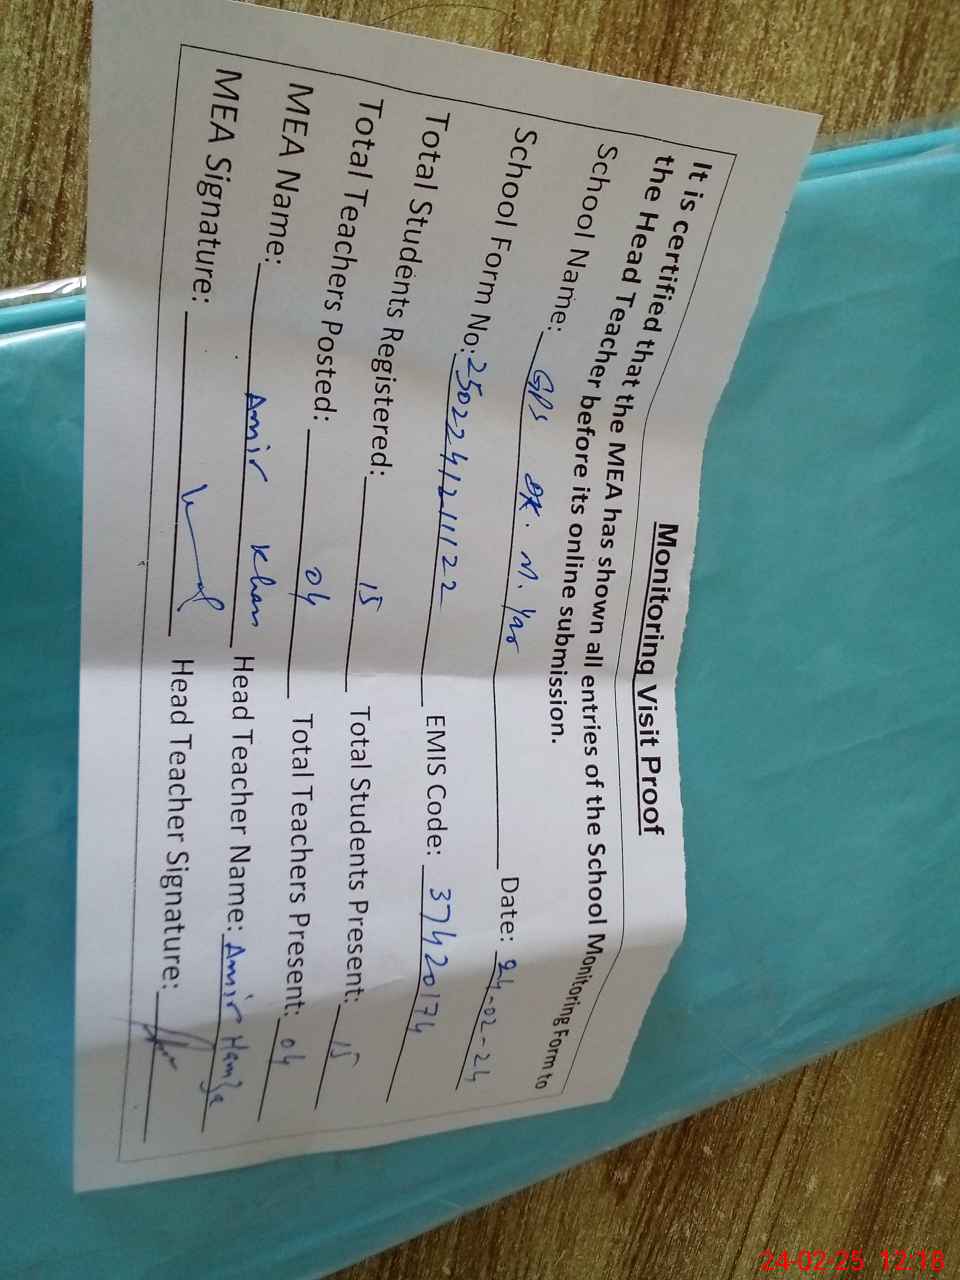 Monitoring Visit Proof
It is certified that the MEA has shown all entries of the School Monitoring Form to
the Head Teacher before its online submission.
School Name: GPS M. Yar Date: 24-02-24
School Form No: 2502241211122 EMIS Code: 37420174
Total Students Registered: 15 Total Students Present: 15
Total Teachers Posted: 04 Total Teachers Present: 04
MEA Name: Amir Khan Head Teacher Name: Amir Hamza
MEA Signature: Head Teacher Signature:
24-02-25 12:18